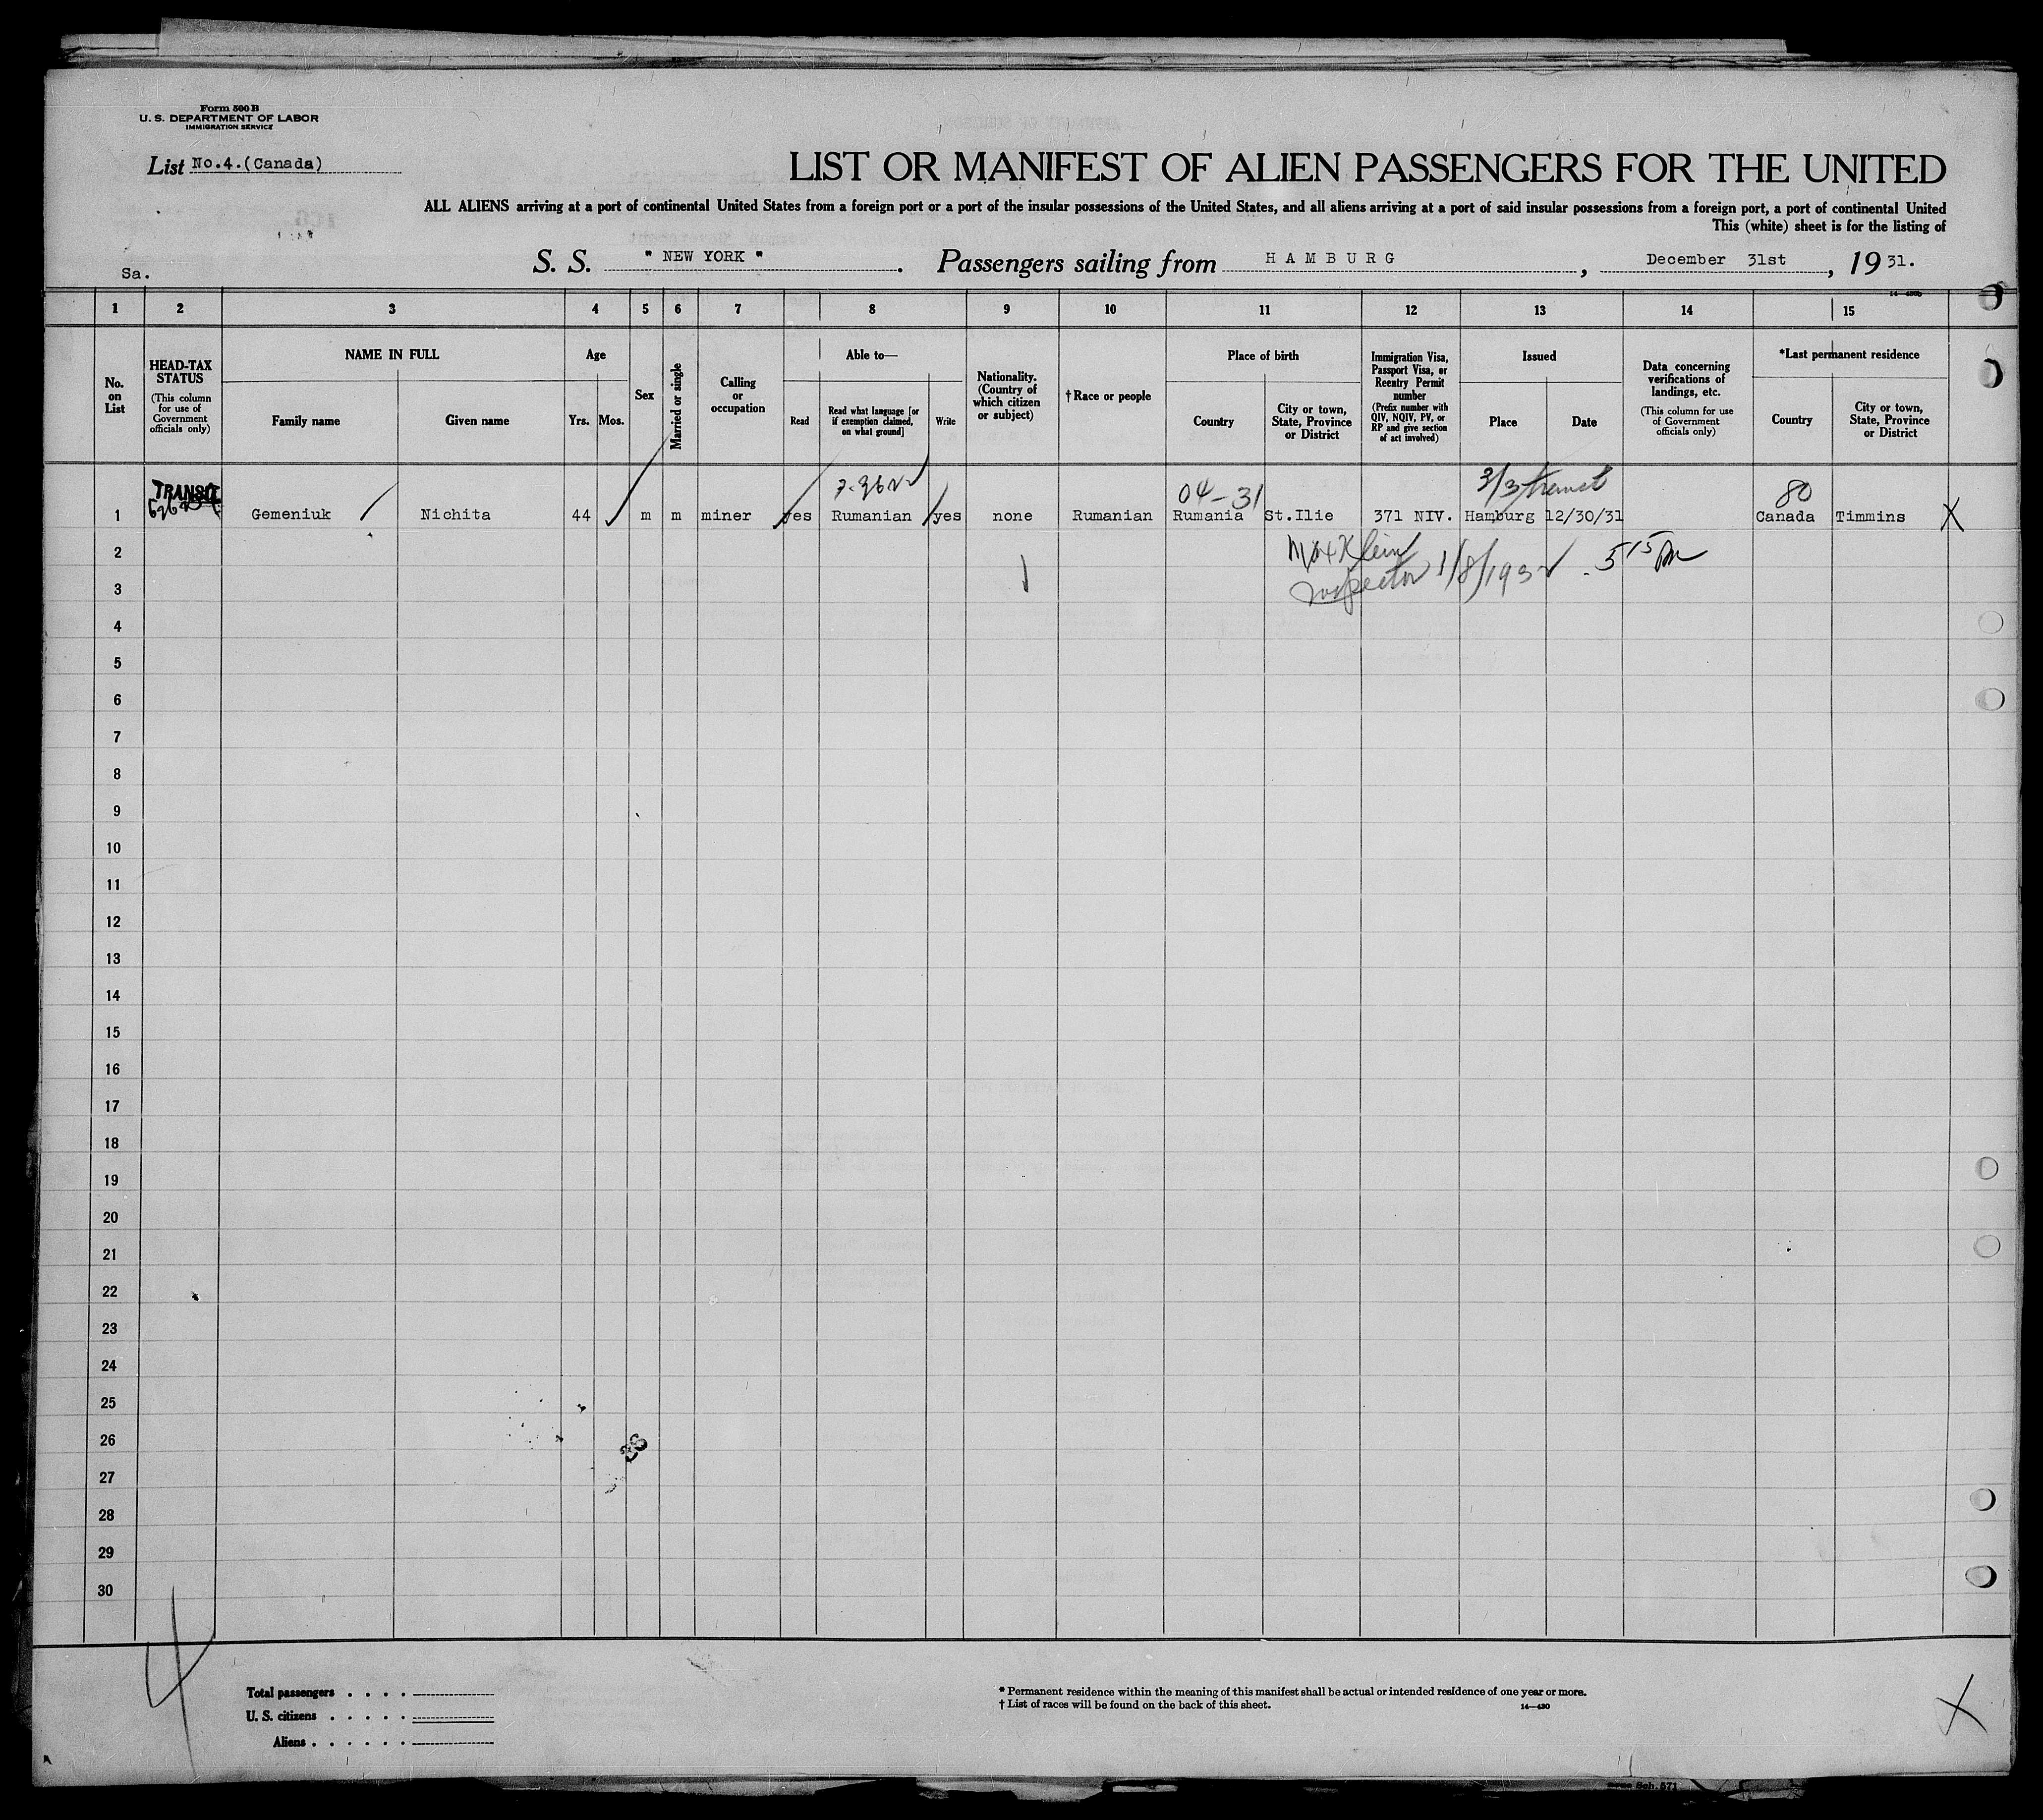 Form 500 B
U. S. DEPARTMENT OF LABOR
IMMIGRATION SERVICE
List No.4.(Canada)
LIST OR MANIFEST OF ALIEN PASSENGERS FOR THE UNITED
ALL ALIENS arriving at a port of continental United States from a foreign port or a port of the insular possessions of the United States, and all aliens arriving at a port of said insular possessions from a foreign port, a port of continental United
This (white) sheet is for the listing of
Sa.
S. S. " NEW YORK " . Passengers sailing from HAMBURG , December 31st , 19 31.
1 2 3 4 5 6 7 8 9 10 11 12 13 14 15
No. on List
HEAD-TAX STATUS
(This column for use of Government officials only)
NAME IN FULL
Family name
Given name
Age
Yrs.
Mos.
Sex
Married or single
Calling or occupation
Able to—
Read
Read what language [or if exemption claimed, on what ground]
Write
Nationality. (Country of which citizen or subject)
† Race or people
Place of birth
Country
City or town, State, Province or District
Immigration Visa, Passport Visa, or Reentry Permit number
(Prefix number with QIV, NQIV, PV, or RP and give section of act involved)
Issued
Place
Date
Data concerning verifications of landings, etc.
(This column for use of Government officials only)
*Last permanent residence
Country
City or town, State, Province or District
TRANSIT
04-31
3/3 transit
80
1 Gemeniuk Nichita 44 m m miner yes Rumanian yes none Rumanian Rumania St.Ilie 371 NIV. Hamburg 12/30/31 Canada Timmins X
Max Klein
Inspector 1/8/1932 5 15 PM
2
3
4
5
6
7
8
9
10
11
12
13
14
15
16
17
18
19
20
21
22
23
24
25
26
27
28
29
30
4
Total passengers . . . .
U. S. citizens . . . . .
Aliens . . . . . .
* Permanent residence within the meaning of this manifest shall be actual or intended residence of one year or more.
† List of races will be found on the back of this sheet.
14—430
X
Sch. 571